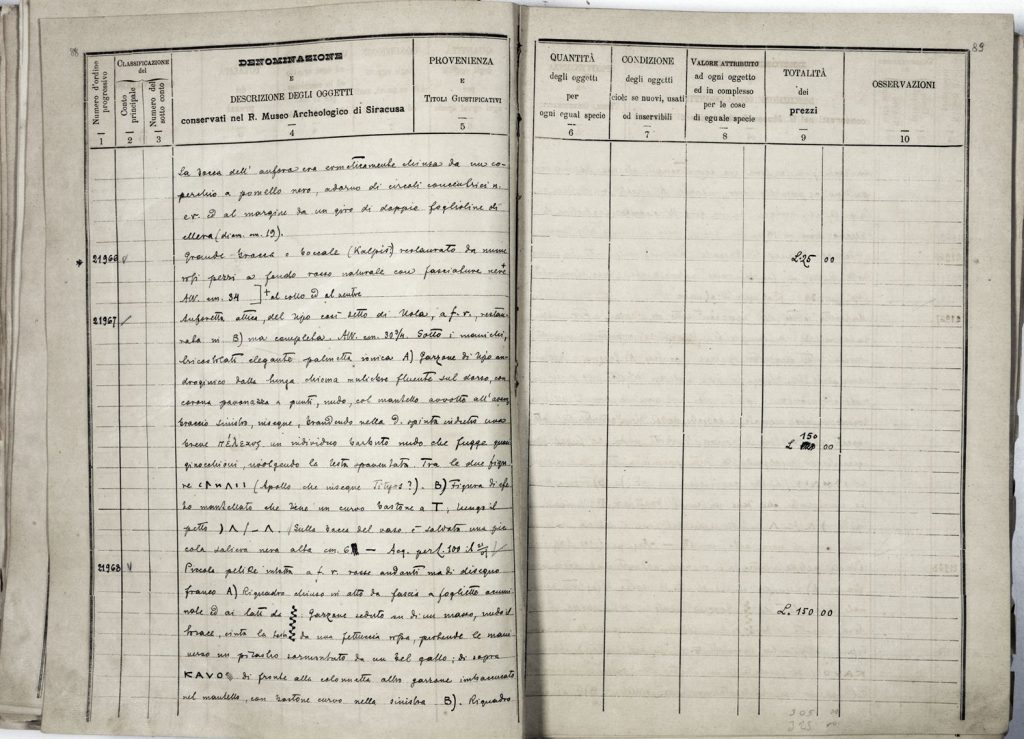 88
Numero d'ordine progressivo
1
CLASSIFICAZIONE del
Conto principale
2
Numero del sotto conto
3
DENOMINAZIONE
E
DESCRIZIONE DEGLI OGGETTI
conservati nel R. Museo Archeologico di Siracusa
4
PROVENIENZA
E
TITOLI GIUSTIFICATIVI
5
La bocca dell' anfora era ermeticamente chiusa da un co-
perchio a pomello nero, adorno di circoli concentrici n.
e r. ed al margine da un giro di doppie foglioline di
ellera (diam. cm. 19).
21966
Grande brocca o boccale (Kalpis) restaurato da nume
rosi pezzi a fondo rosso naturale con fasciature nere
Alt. cm. 34 ] + al collo ed al ventre
21967
Anforetta attica, del tipo così detto di Nola, a f. r., restau-
rata in B) ma completa. Alt. cm. 30 3/4. Sotto i manichi,
tricostolati elegante palmetta ionica A) Garzone di tipo an-
droginico dalla lunga chioma muliebre fluente sul dorso, con
corona pavonazza a punti, nudo, col mantello avvolto all'
braccio sinistro, insegue, brandendo nella d. spinta indietro una
breve πέλεκυς un individuo barbuto nudo che fugge quasi
ginocchioni, volgendo la testa spaventata. Tra le due figu-
re (Apollo che insegue Tityos?). B) Figura di efe-
bo mantellato che tiene un curvo bastone a T, lungo il
petto ) Λ / – Λ. (Sulla bocca del vaso è saldata una pic-
cola saliera nera alta cm. 6 — Acq. per L. 100 il
21968
Piccola pelike intatta a f. r. rosse andanti ma di disegno
franco A) Riquadro chiuso in alto da fascia a fogliette
ed ai lati da Garzone seduto su di un masso, nudo il
torace, cinto la testa da una fettuccia rossa, protende le mani
verso un pilastro sormontato da un bel gallo; di sopra
KAVOS di fronte alla colonnetta altro garzone imbacuccato
nel mantello, con bastone curvo nella sinistra B). Riquadro
89
QUANTITÀ
degli oggetti
per
ogni egual specie
6
CONDIZIONE
degli oggetti
cioè: se nuovi, usati
od inservibili
7
VALORE ATTRIBUITO
ad ogni oggetto
ed in complesso
per le cose
di eguale specie
8
TOTALITÀ
dei
prezzi
9
OSSERVAZIONI
10
L. 25 00
150
L. 00
L. 150 00